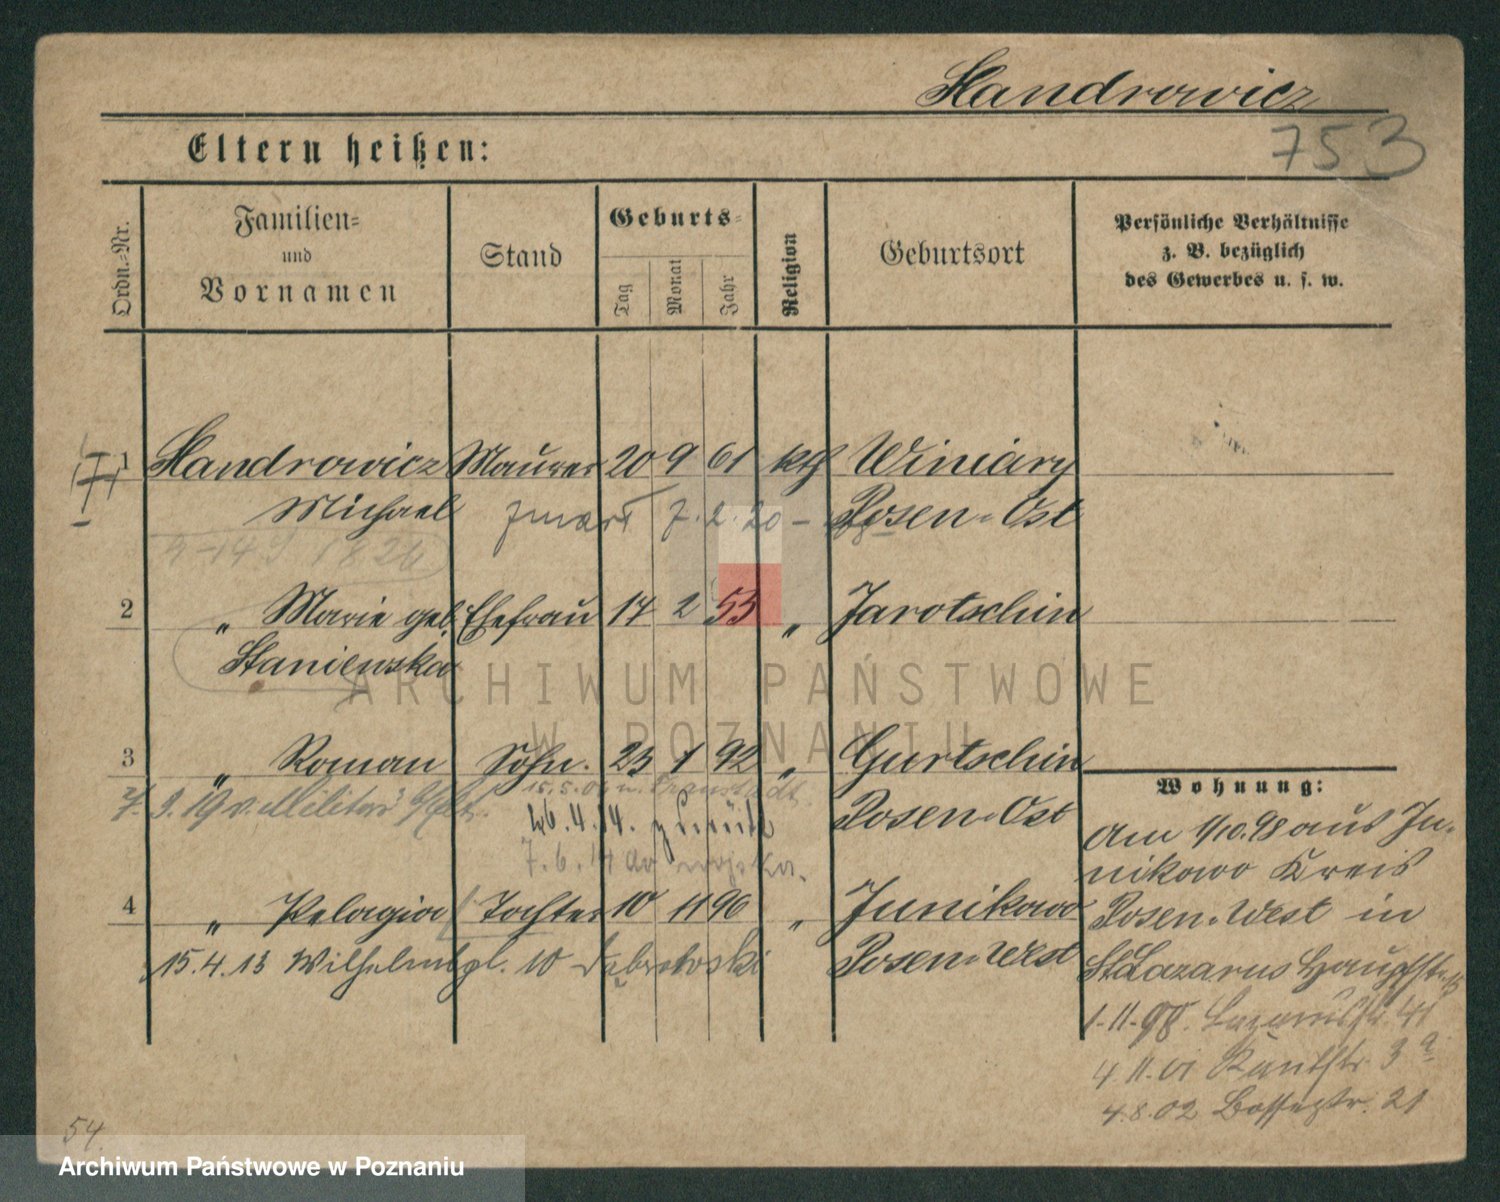 Handrowicz
753
Eltern heißen:
Ordn.-Nr.
Familien- und Vornamen
Stand
Geburts-
Tag
Monat
Jahr
Religion
Geburtsort
Persönliche Verhältnisse
z. B. bezüglich
des Gewerbes u. s. w.
1 Handrowicz Maurer 20 9 61 kth Winiary
Michael zmarł 7.2.20 - Posen-Ost
2 " Marie geb. Ehefrau 14 2 55 " Jarotschin
Staniewska
3 " Roman Sohn. 23 1 92 " Gurtschin
15.5.0
7.9.19 v. Militär Posen-Ost
26.4.14.
7.6.14 do wojska.
4 " Pelagia Tochter 10 11 96 " Junikowo
15.4.13 Wilhelmspl. 10 Posen-West
Wohnung:
Am 1/10.98 aus Ju-
nikowo Kreis
Posen-West in
St Lazarus Hauptstr.
1-11-98. Lazarusstr. 41
4.11.01 Kantstr. 3a
4.8.02 21
54.
ARCHIWUM PAŃSTWOWE
W POZNANIU
Archiwum Państwowe w Poznaniu